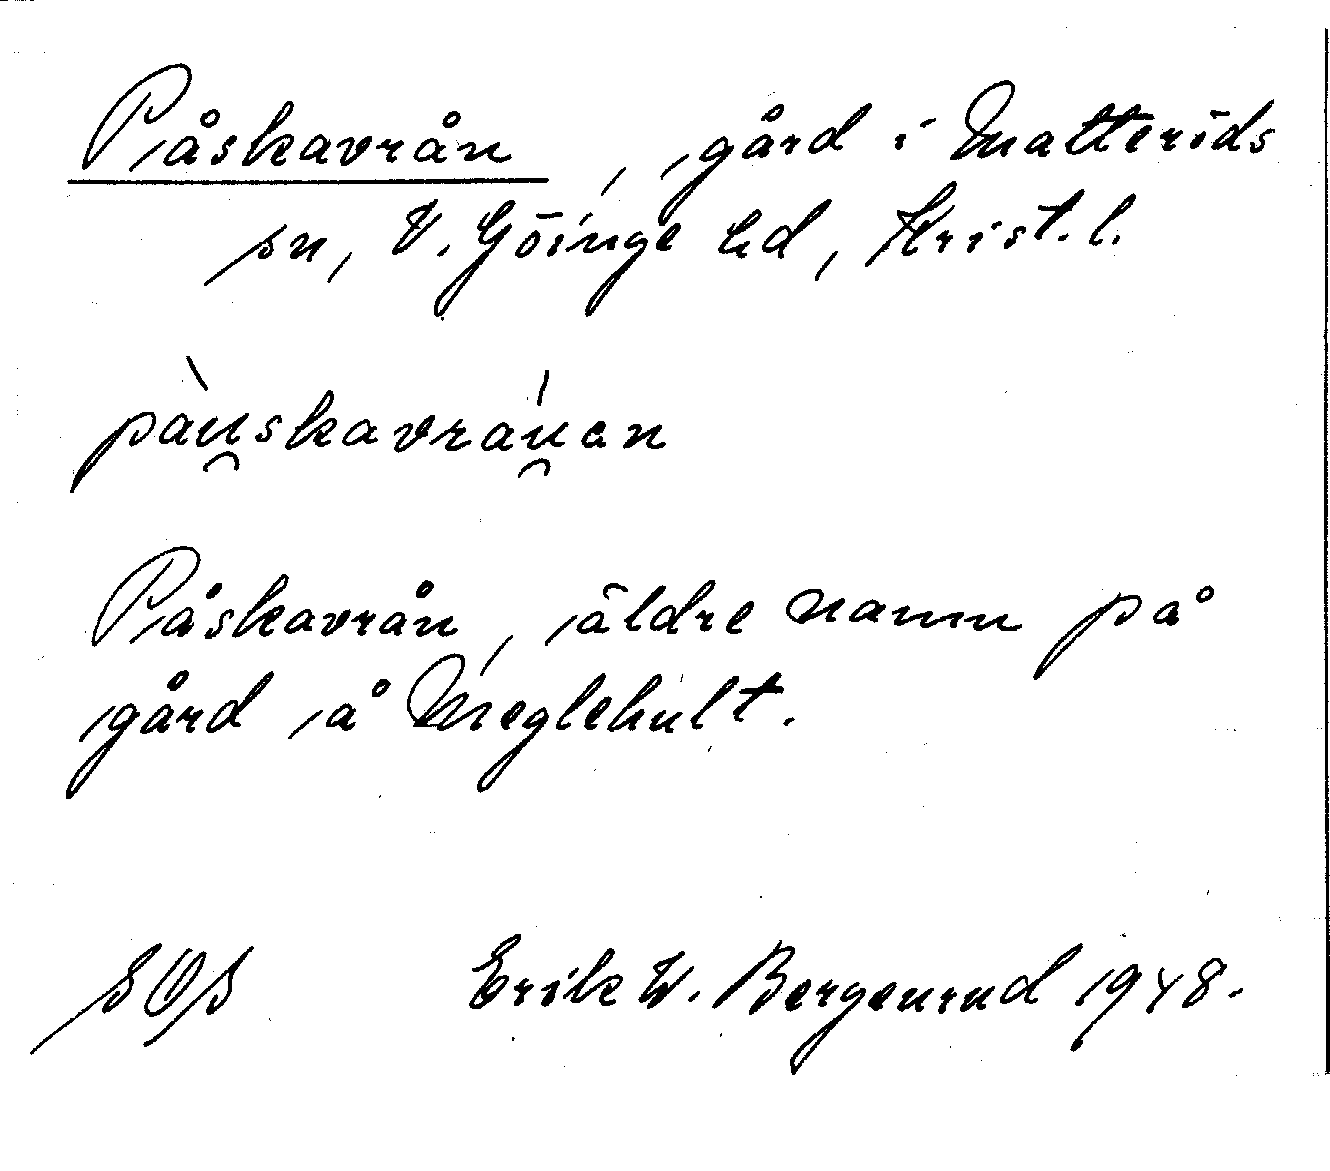 Påskavrån, gård i Matterōds
sn, V. Göinge hd, Krist. l.
pàu̯skavráu̯an
Påskavrån, äldre namn på
gård å Mreglehult.
SOS Erik W. Bergenrud 1948.